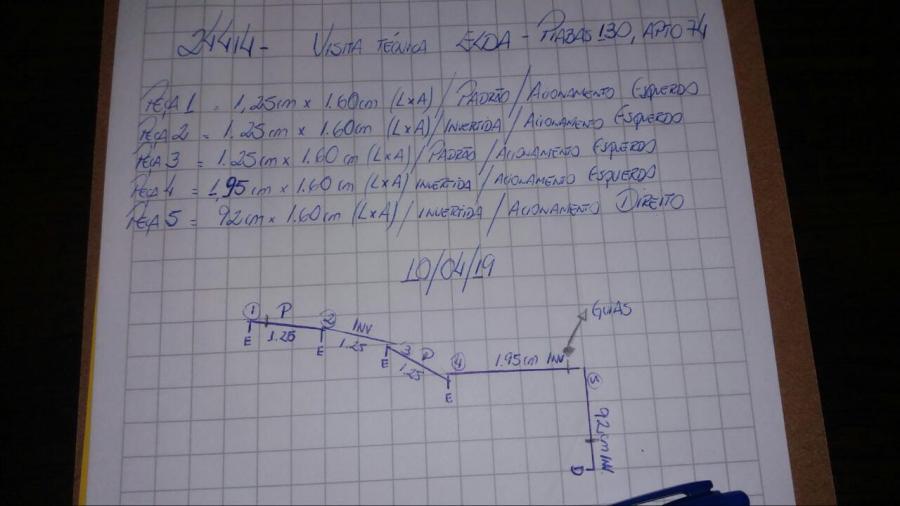 24414 - VISITA TÉCNICA ELDA - PIABAS 130, APTO 74
PEÇA 1 = 1,25cm x 1.60cm (LxA) / PADRÃO / ACIONAMENTO ESQUERDO
PEÇA 2 = 1.25cm x 1.60cm (LxA) / INVERTIDA / ACIONAMENTO ESQUERDO
PEÇA 3 = 1.25cm x 1.60cm (LxA) / PADRÃO / ACIONAMENTO ESQUERDO
PEÇA 4 = 1,95cm x 1.60cm (LxA) / INVERTIDA / ACIONAMENTO ESQUERDO
PEÇA 5 = 92cm x 1.60cm (LxA) / INVERTIDA / ACIONAMENTO DIREITO
10/04/19
1 P
E 1.25
2 INV
E 1.25
3 P
E 1.25
4 1.95cm INV
E
GUIAS
5
92cm INV
D